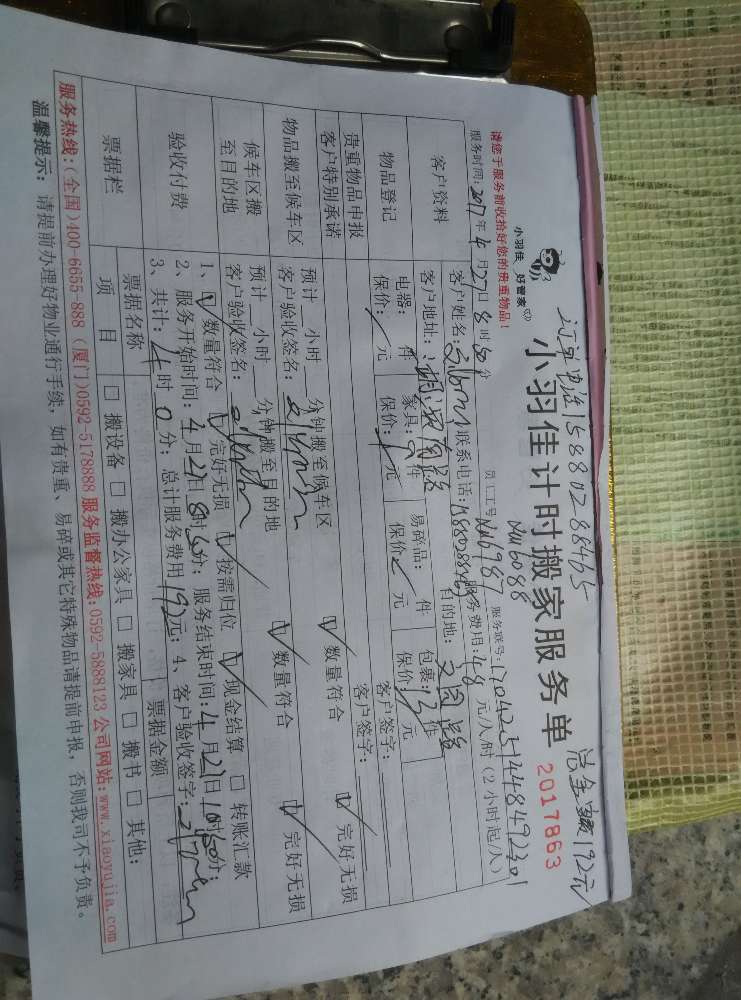 订单电话15880288465 总金额192元
小羽佳 好管家
小羽佳计时搬家服务单 2017863
请您于服务前收拾好您的贵重物品!
NW6088
服务时间:2017年4月27日8时30分 员工工号 NW6987 服务账号:
客户资料 客户姓名: 联系电话: 服务费用:48元/人/时(2小时起/人)
客户地址: 目的地:
物品登记 电器: 件 家具: 件 易碎品: 件 包裹: 件
保价: 元 保价: 元 保价: 元 保价: 元
贵重物品申报 客户签字:
客户特别承诺 客户签字:
物品搬至候车区 预计 小时 分钟搬至候车区
客户验收签名: 数量符合 完好无损
候车区搬至目的地 预计 小时 分钟搬至目的地
客户验收签名: 数量符合 完好无损
验收付费 1、 数量符合 完好无损 按需归位 现金结算 转账汇款
2、服务开始时间:4月27日8时30分;服务结束时间:4月27日10时30分;
3、共计:4时0分;总计服务费用192元;4、客户验收签字:
票据栏 票据名称 票据金额
项目 搬设备 搬办公家具 搬家具 搬书 其他:
服务热线:(全国)400-6655-888 (厦门)0592-5178888 服务监督热线:0592-5888123 公司网站:www.xiaoyujia.com
温馨提示:请提前办理好物业通行手续,如有贵重、易碎或其它特殊物品请提前申报,否则我司不予负责。